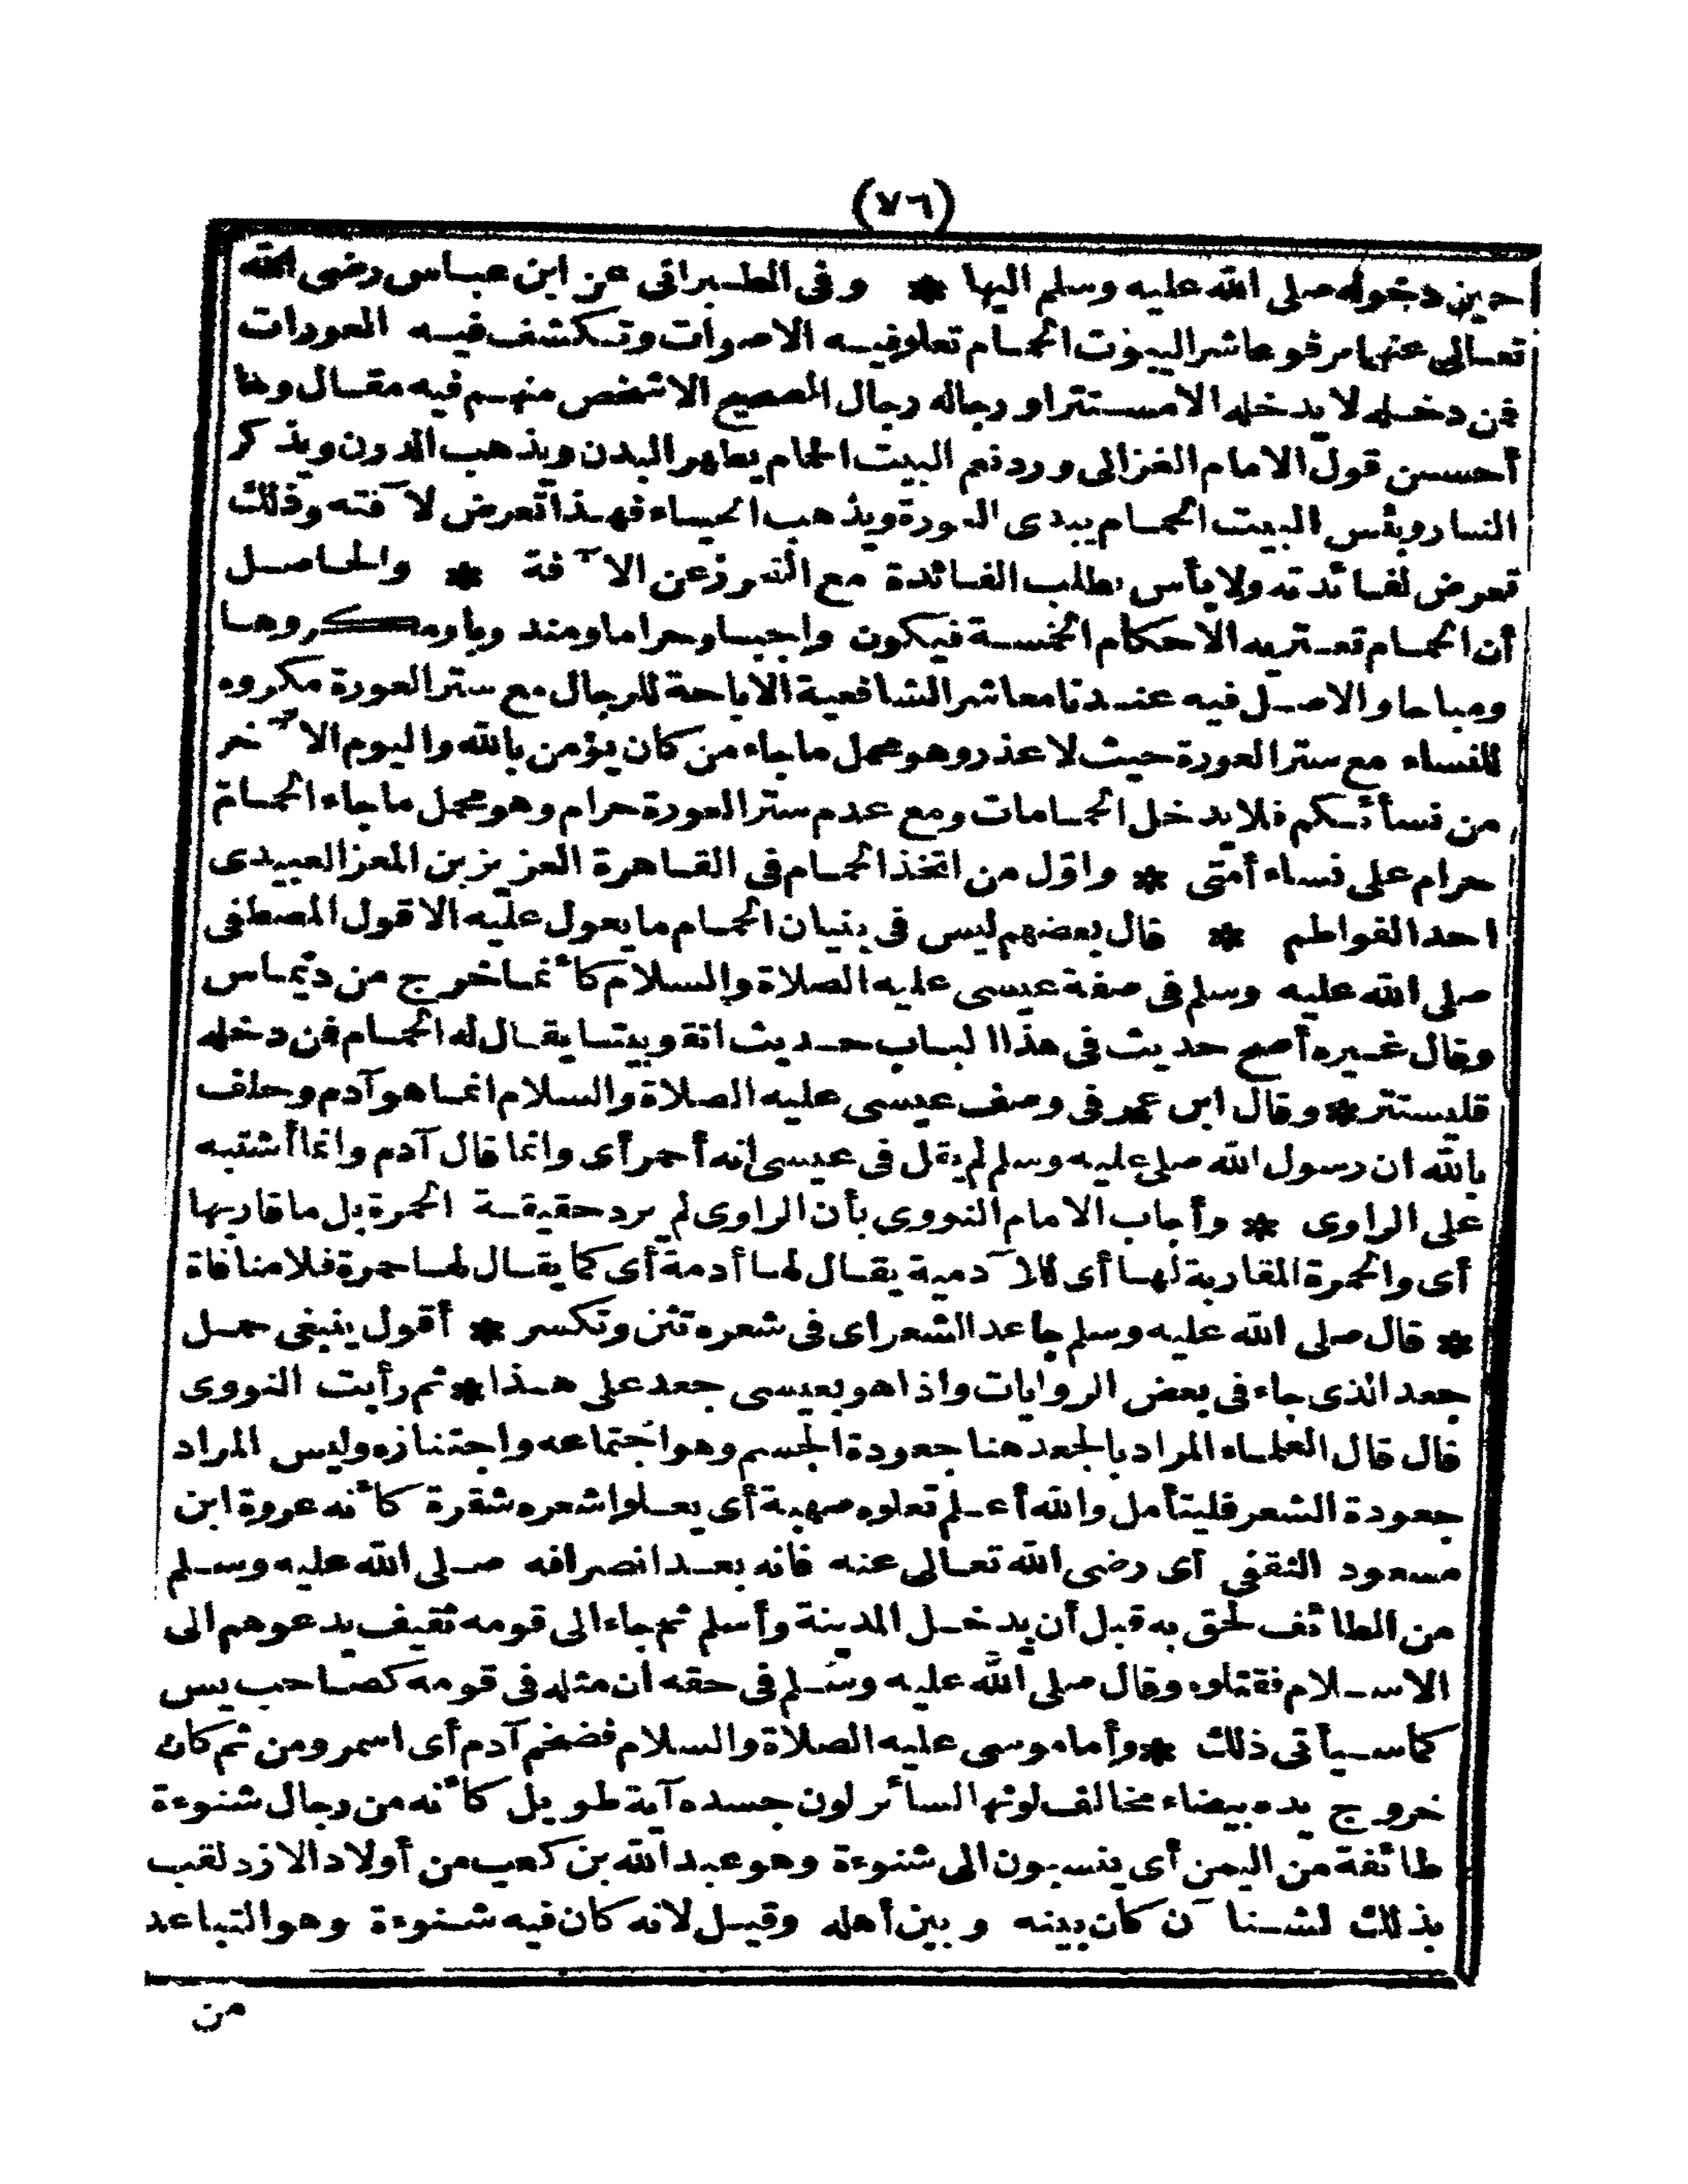 (٧٦)
حين دخوله صلى الله عليه وسلم اليها * وفى الطبرانى عن ابن عباس رضى الله
تعالى عنهما مرفوعا شر البيوت الحمام تعلو فيه الاصوات وتكشف فيه العورات
فمن دخله لا يدخله الا مستترا ورجاله رجال الصحيح الا شخص منهم فيه مقال وما
أحسن قول الامام الغزالى وردنعم البيت الحمام يطهر البدن ويذهب الدرن ويذكر
النار وبئس البيت الحمام يبدى العورة ويذهب الحياء فهذا تعرض لآفته وذلك
تعرض لفائدته ولا بأس بطلب الفائدة مع التحرز عن الآفة * والحاصل
أن الحمام تعتريه الاحكام الخمسة فيكون واجبا وحراما ومندوبا ومكروها
ومباحا والاصل فيه عندنا معاشر الشافعية الاباحة للرجال مع ستر العورة مكروه
للنساء مع ستر العورة حيث لا عذر وهو محمل ما جاء من كان يؤمن بالله واليوم الآخر
من نسائكم فلا يدخل الحمامات ومع عدم ستر العورة حرام وهو محمل ما جاء الحمام
حرام على نساء أمتى * واوّل من اتخذ الحمام فى القاهرة العزيز بن المعز العبيدى
احد الفواطم * قال بعضهم ليس فى بنيان الحمام ما يعول عليه الا قول المصطفى
صلى الله عليه وسلم فى صفة عيسى عليه الصلاة والسلام كأنما خرج من ديماس
وقال غيره أصح حديث فى هذا الباب حديث اتقوا بيتا يقال له الحمام فمن دخله
فليستتر * وقال ابن عمر فى وصف عيسى عليه الصلاة والسلام انما هو آدم وحلف
بالله ان رسول الله صلى عليه وسلم لم يقل فى عيسى انه أحمر أى وانما قال آدم وانما أشتبه
على الراوى * وأجاب الامام النووى بأن الراوى لم يرد حقيقة الحمرة بل ما قاربها
أى والحمرة المقاربة لها أى للآدمية يقال لها أدمة أى كما يقال لها حمرة فلا منافاة
* قال صلى الله عليه وسلم جاعد الشعر اى فى شعره تثن وتكسر * أقول ينبغى حمل
جعد الذى جاء فى بعض الروايات واذا هو بعيسى جعد على هذا * ثم رأيت النووى
قال قال العلماء المراد بالجعد هنا جعودة الجسم وهو اجتماعه واجتنازه وليس المراد
جعودة الشعر فليتأمل والله أعلم تعلوه صهبة أى يعلو اشعره شقرة كأنه عروة ابن
مسعود الثقفى أى رضى الله تعالى عنه فانه بعد انصرافه صلى الله عليه وسلم
من الطائف لحق به قبل أن يدخل المدينة وأسلم ثم جاء الى قومه ثقيف يدعوهم الى
الاسلام فقتلوه وقال صلى الله عليه وسلم فى حقه ان مثله فى قومه كصاحب يس
كما سيأتى ذلك * وأما موسى عليه الصلاة والسلام فضخم آدم أى اسمر ومن ثم كان
خروج يده بيضاء مخالف لونها لسائر لون جسده آية طويل كأنه من رجال شنوءة
طائفة من اليمن أى ينسبون الى شنوءة وهو عبد الله بن كعب من أولاد الازد لقب
بذلك لشنآن كان بينه وبين أهله وقيل لانه كان فيه شنوءة وهو التباعد
من